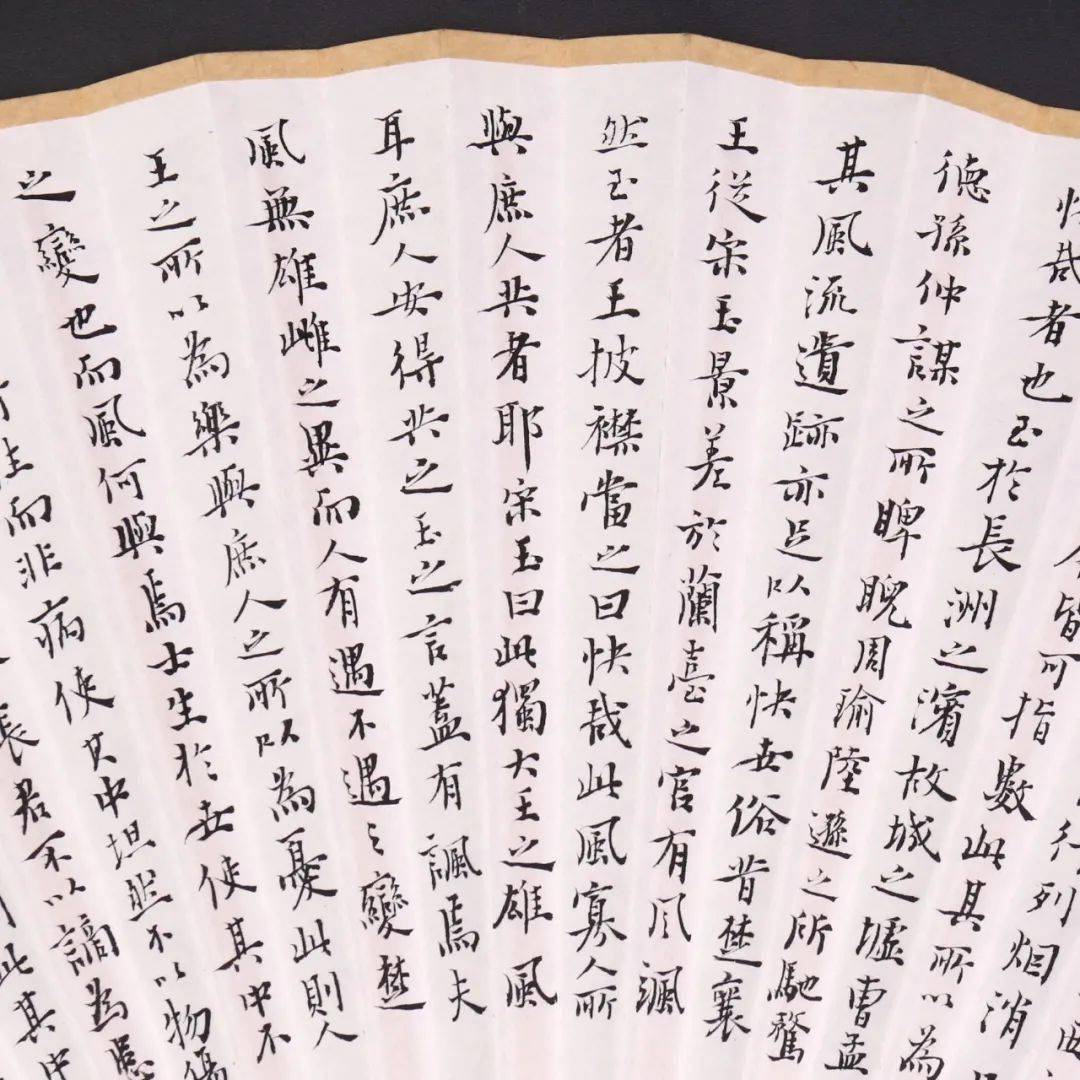 行列烟消
今皆可指數此其所以為
快哉者也至於長洲之濱故城之墟曹孟
德孫仲謀之所睥睨周瑜陸遜之所馳騖
其風流遺跡亦足以稱快世俗昔楚襄
王從宋玉景差於蘭臺之宮有風颯
然至者王披襟當之曰快哉此風寡人所
與庶人共者耶宋玉曰此獨大王之雄風
耳庶人安得共之玉之言蓋有諷焉夫
風無雄雌之異而人有遇不遇之變楚
王之所以為樂與庶人之所以為憂此則人
之變也而風何與焉士生於世使其中不
往而非病使其中坦然不以物傷
張君不以謫為患
此其中